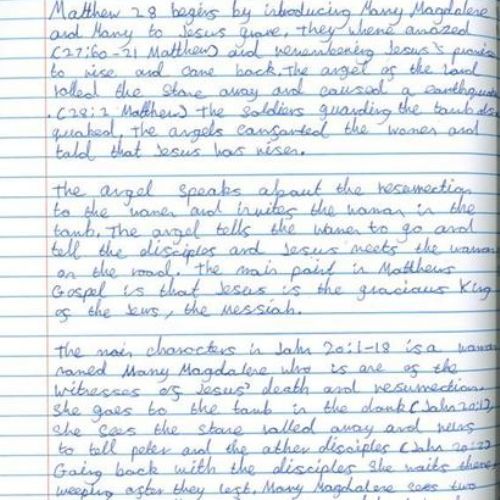 Matthew 28 begins by introducing Mary Magdalene
and Mary to Jesus grave, they where amazed
(27:60-21 Matthew) and remembering Jesus's promise
to rise and come back. The angel of the Lord
rolled the stone away and caused a earthquake
. (28:2 Matthew) The soldiers guarding the tomb also
quaked, the angels consorted the women and
told that Jesus has risen.
The angel speaks about the resurrection
to the women and invites the woman in the
tomb. The angel tells the women to go and
tell the disciples and Jesus meets the woman
on the road. The main point in Matthews
Gospel is that Jesus is the gracious King
of the Jews, the messiah.
The main characters in John 20:1-18 is a woman
named Mary Magdalene who is one of the
witnesses of Jesus' death and resurrection.
She goes to the tomb in the dark (John 20:1)
She sees the stone rolled away and runs
to tell peter and the other disciples (John 20:2)
Going back with the disciples she waits there
weeping after they left. Mary Magdalene sees two